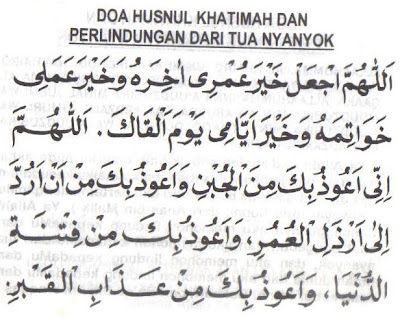 DOA HUSNUL KHATIMAH DAN
PERLINDUNGAN DARI TUA NYANYOK
اَللّٰهُمَّ اجْعَلْ خَيْرَ عُمْرِى اٰخِرَهُ وَخَيْرَ عَمَلِى
خَوَاتِمَهُ وَخَيْرَ اَيَّامِى يَوْمَ اَلْقَاكَ. اَللّٰهُمَّ
اِنِّى اَعُوْذُ بِكَ مِنَ الْجُبْنِ وَاَعُوْذُ بِكَ مِنْ اَنْ اُرَدَّ
اِلَى اَرْذَلِ الْعُمُرِ، وَاَعُوْذُ بِكَ مِنْ فِتْنَةِ
الدُّنْيَا، وَاَعُوْذُ بِكَ مِنْ عَذَابِ الْقَبْرِ.